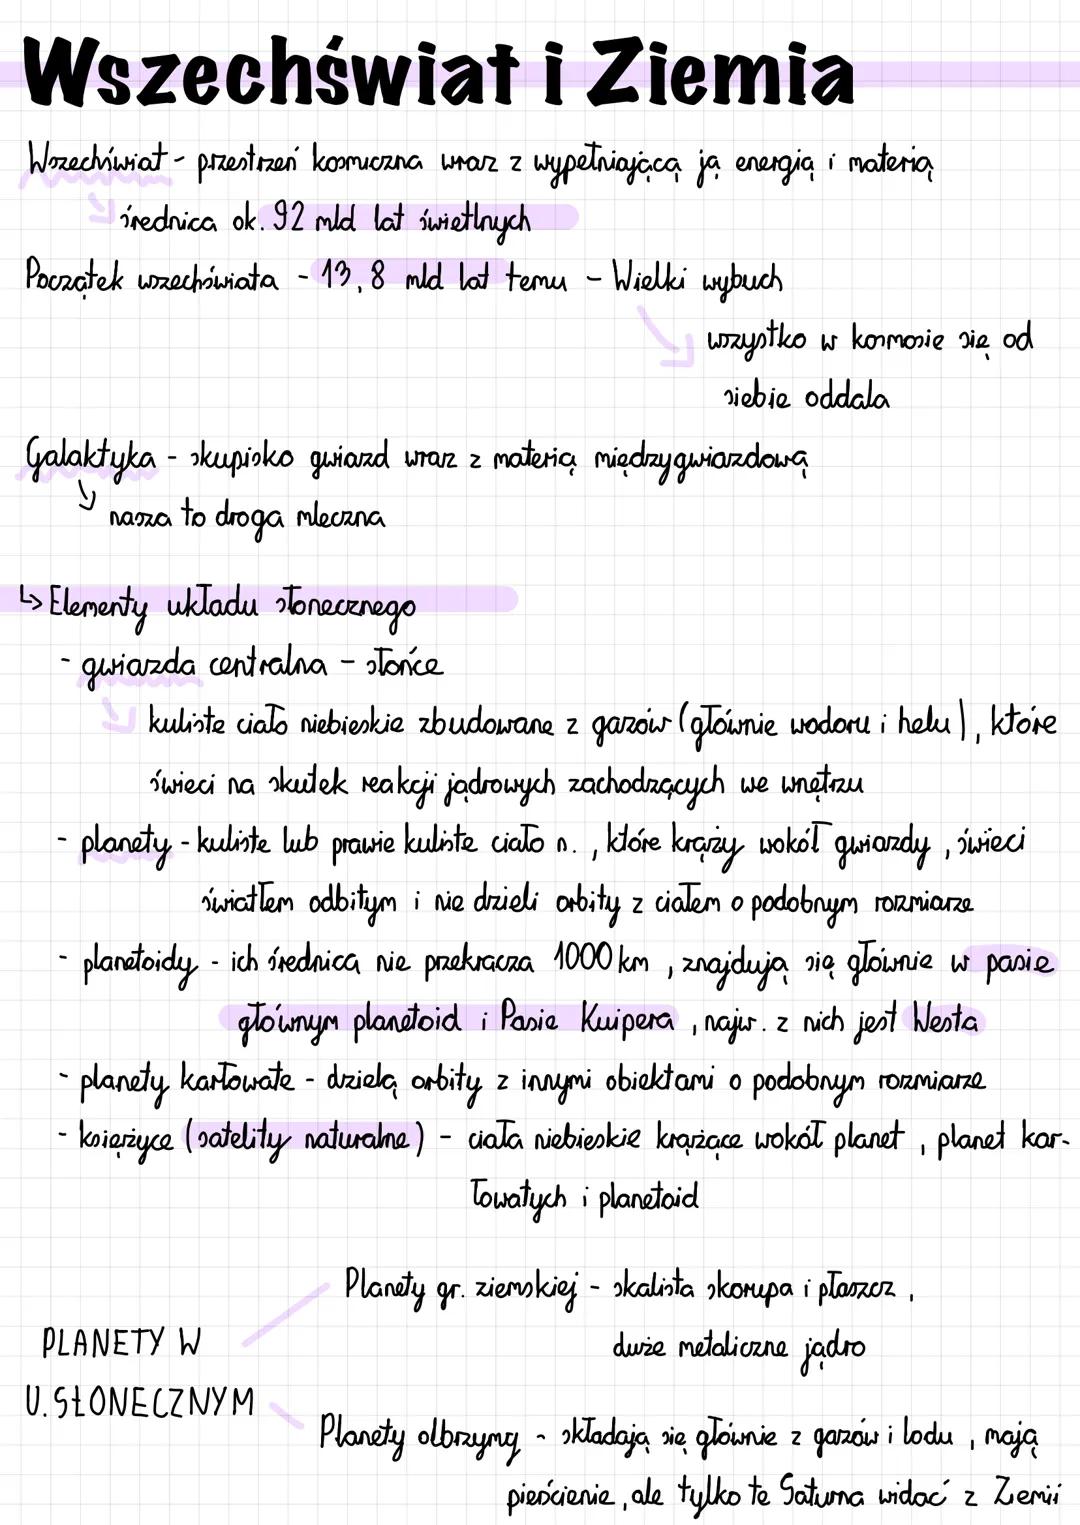 Wszechświat i Ziemia
Wszechświat - przestrzeń kosmiczna wraz z wypełniającą ją energią i materią
średnica ok. 92 mld lat świetlnych
Początek wszechświata - 13,8 mld lat temu - Wielki wybuch
wszystko w kosmosie się od
siebie oddala
Galaktyka - skupisko gwiazd wraz z materią międzygwiazdową
nasza to droga mleczna
↳ Elementy układu słonecznego
- gwiazda centralna - słońce
kuliste ciało niebieskie zbudowane z gazów (głównie wodoru i helu), które
świeci na skutek reakcji jądrowych zachodzących we wnętrzu
- planety - kuliste lub prawie kuliste ciało n., które krąży wokół gwiazdy, świeci
światłem odbitym i nie dzieli orbity z ciałem o podobnym rozmiarze
- planetoidy - ich średnica nie przekracza 1000 km, znajdują się głównie w pasie
głównym planetoid i Pasie Kuipera, najw. z nich jest Westa
- planety karłowate - dzielą orbity z innymi obiektami o podobnym rozmiarze
- księżyce (satelity naturalne) - ciała niebieskie krążące wokół planet, planet kar-
łowatych i planetoid
Planety gr. ziemskiej - skalista skorupa i płaszcz,
duże metaliczne jądro
PLANETY W
U. SŁONECZNYM
Planety olbrzymy - składają się głównie z gazów i lodu, mają
pierścienie, ale tylko te Saturna widać z Ziemii